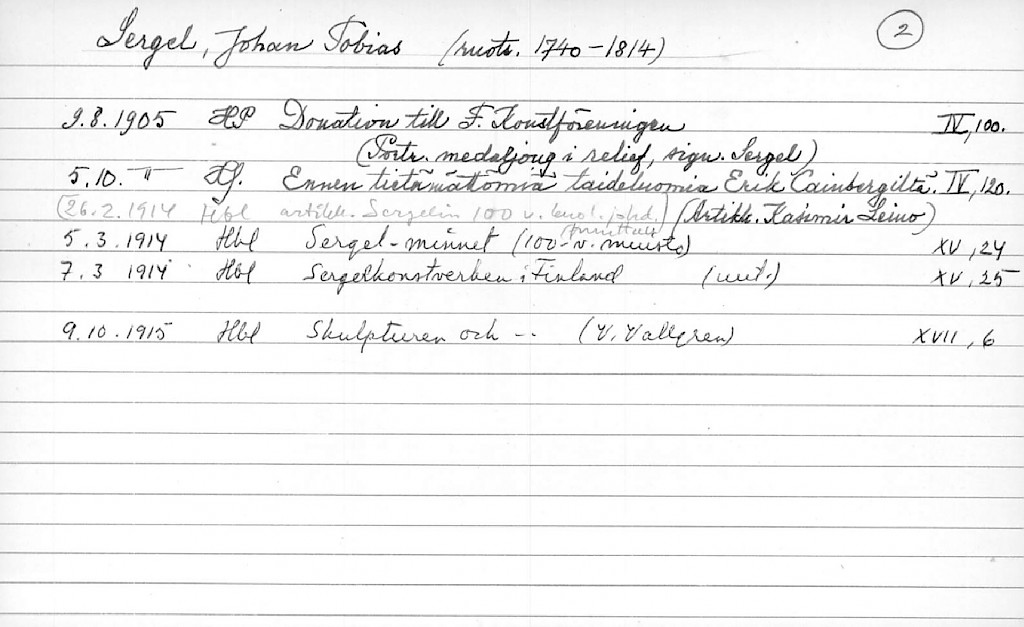 Sergel, Johan Tobias (ruots. 1740-1814) 2
9.8.1905 HP Donation till F. Konstföreningen IV, 100.
(Portr. medaljong i relief, sign. Sergel)
5.10. " Ennen tietämättömiä taideluomia Erik Cainbergiltä. IV, 120.
(26.2.1914 Hbl artikk. Sergelin 100 v. kuol. joht.) (Artikk. Kasimir Leino)
5.3.1914 Hbl Sergel-minnet (100-v. muisto) XV, 24
7.3 1914 Hbl Sergelkonstverken i Finland (uut.) XV, 25
9.10.1915 Hbl Skulpturen och -- (V. Vallgren) XVII, 6